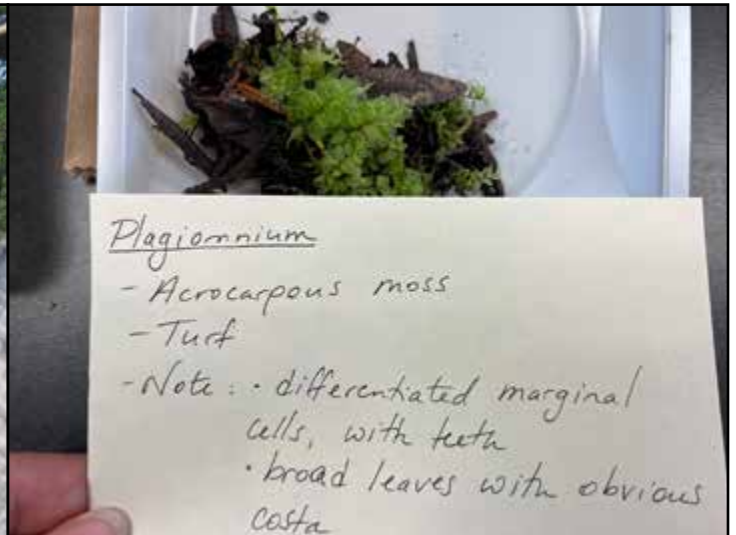 Plagiomnium
- Acrocarpous moss
- Turf
- Note: • differentiated marginal
cells, with teeth
• broad leaves with obvious
costa